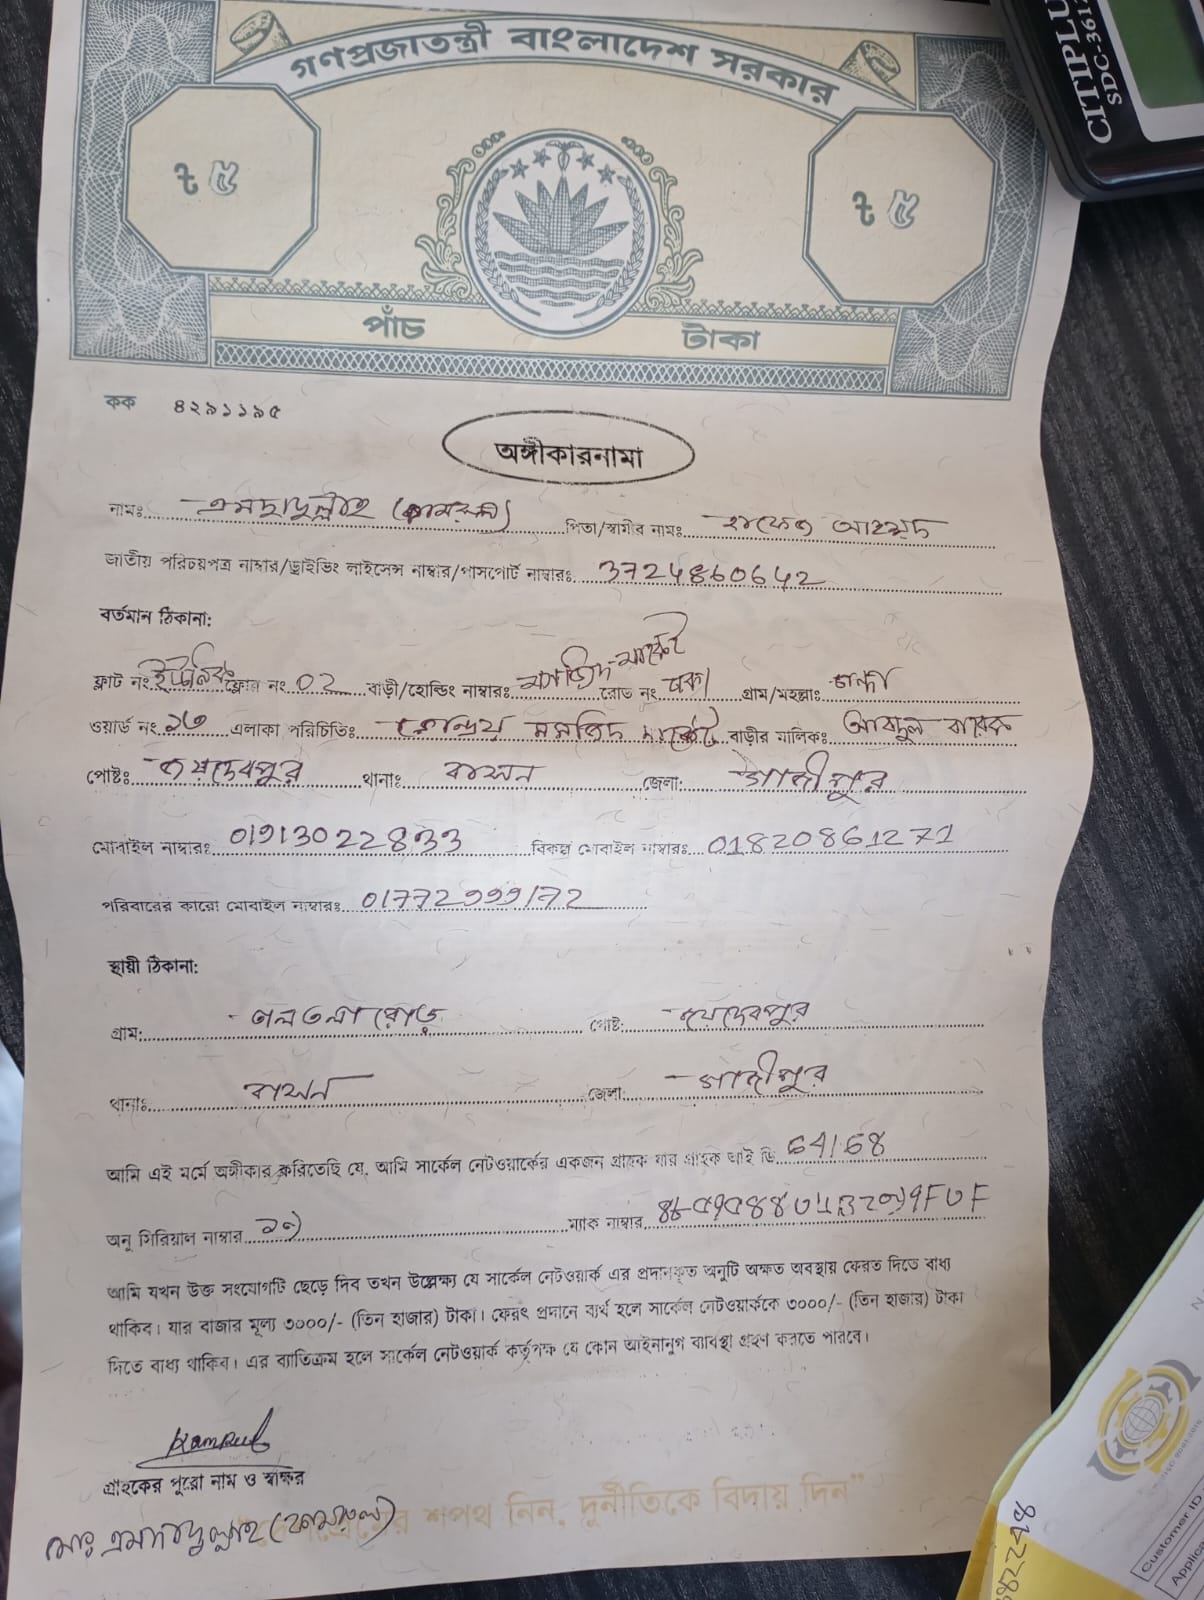 গণপ্রজাতন্ত্রী বাংলাদেশ সরকার
৳ ৫ ৳ ৫
পাঁচ টাকা
কক ৪২৯১১৯৫
অঙ্গীকারনামা
নামঃ এমদাদুল্লাহ (কামরুল) পিতা/স্বামীর নামঃ আহম্মদ
জাতীয় পরিচয়পত্র নাম্বার/ড্রাইভিং লাইসেন্স নাম্বার/পাসপোর্ট নাম্বারঃ 3724860642
বর্তমান ঠিকানা:
ফ্লাট নং ফ্লোর নং 02 বাড়ী/হোল্ডিং নাম্বারঃ মসজিদ মার্কেট রোড নং গ্রাম/মহল্লাঃ
ওয়ার্ড নং এলাকা পরিচিতিঃ কেন্দ্রিয় মসজিদ মার্কেট বাড়ীর মালিকঃ আবদুল বারেক
পোষ্টঃ জয়দেবপুর থানাঃ বাসন জেলা: গাজীপুর
মোবাইল নাম্বারঃ 01913022833 বিকল্প মোবাইল নাম্বারঃ 01820861271
পরিবারের কারো মোবাইল নাম্বারঃ 01772999172
স্থায়ী ঠিকানা:
গ্রাম: রোড পোষ্ট: জয়দেবপুর
থানাঃ বাসন জেলা: গাজীপুর
আমি এই মর্মে অঙ্গীকার করিতেছি যে, আমি সার্কেল নেটওয়ার্কের একজন গ্রাহক যার গ্রাহক আই ডি 64168
অনু সিরিয়াল নাম্বার ম্যাক নাম্বার
আমি যখন উক্ত সংযোগটি ছেড়ে দিব তখন উল্লেক্ষ্য যে সার্কেল নেটওয়ার্ক এর প্রদানকৃত অনুটি অক্ষত অবস্থায় ফেরত দিতে বাধ্য
থাকিব। যার বাজার মূল্য ৩০০০/- (তিন হাজার) টাকা। ফেরৎ প্রদানে ব্যর্থ হলে সার্কেল নেটওয়ার্ককে ৩০০০/- (তিন হাজার) টাকা
দিতে বাধ্য থাকিব। এর ব্যতিক্রম হলে সার্কেল নেটওয়ার্ক কর্তৃপক্ষ যে কোন আইনানুগ ব্যাবস্থা গ্রহণ করতে পারবে।
Kamrul
গ্রাহকের পুরো নাম ও স্বাক্ষর
মোঃ এমদাদুল্লাহ (কামরুল)
শপথ নিন, দুর্নীতিকে বিদায় দিন"
CITIPLU
SDC-361
Customer ID
Applica
682298